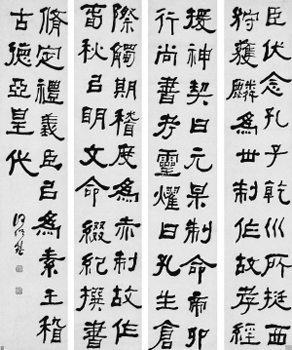 臣伏念孔子乾巛所挺西
狩獲麟為世制作故孝經
援神契曰元某制命帝卯
行尚書考靈燿曰孔生倉
際觸期稽度為赤制故作
春秋㠯明文命綴紀撰書
脩定禮義臣㠯為素王稽
古德亞皇代
何紹基